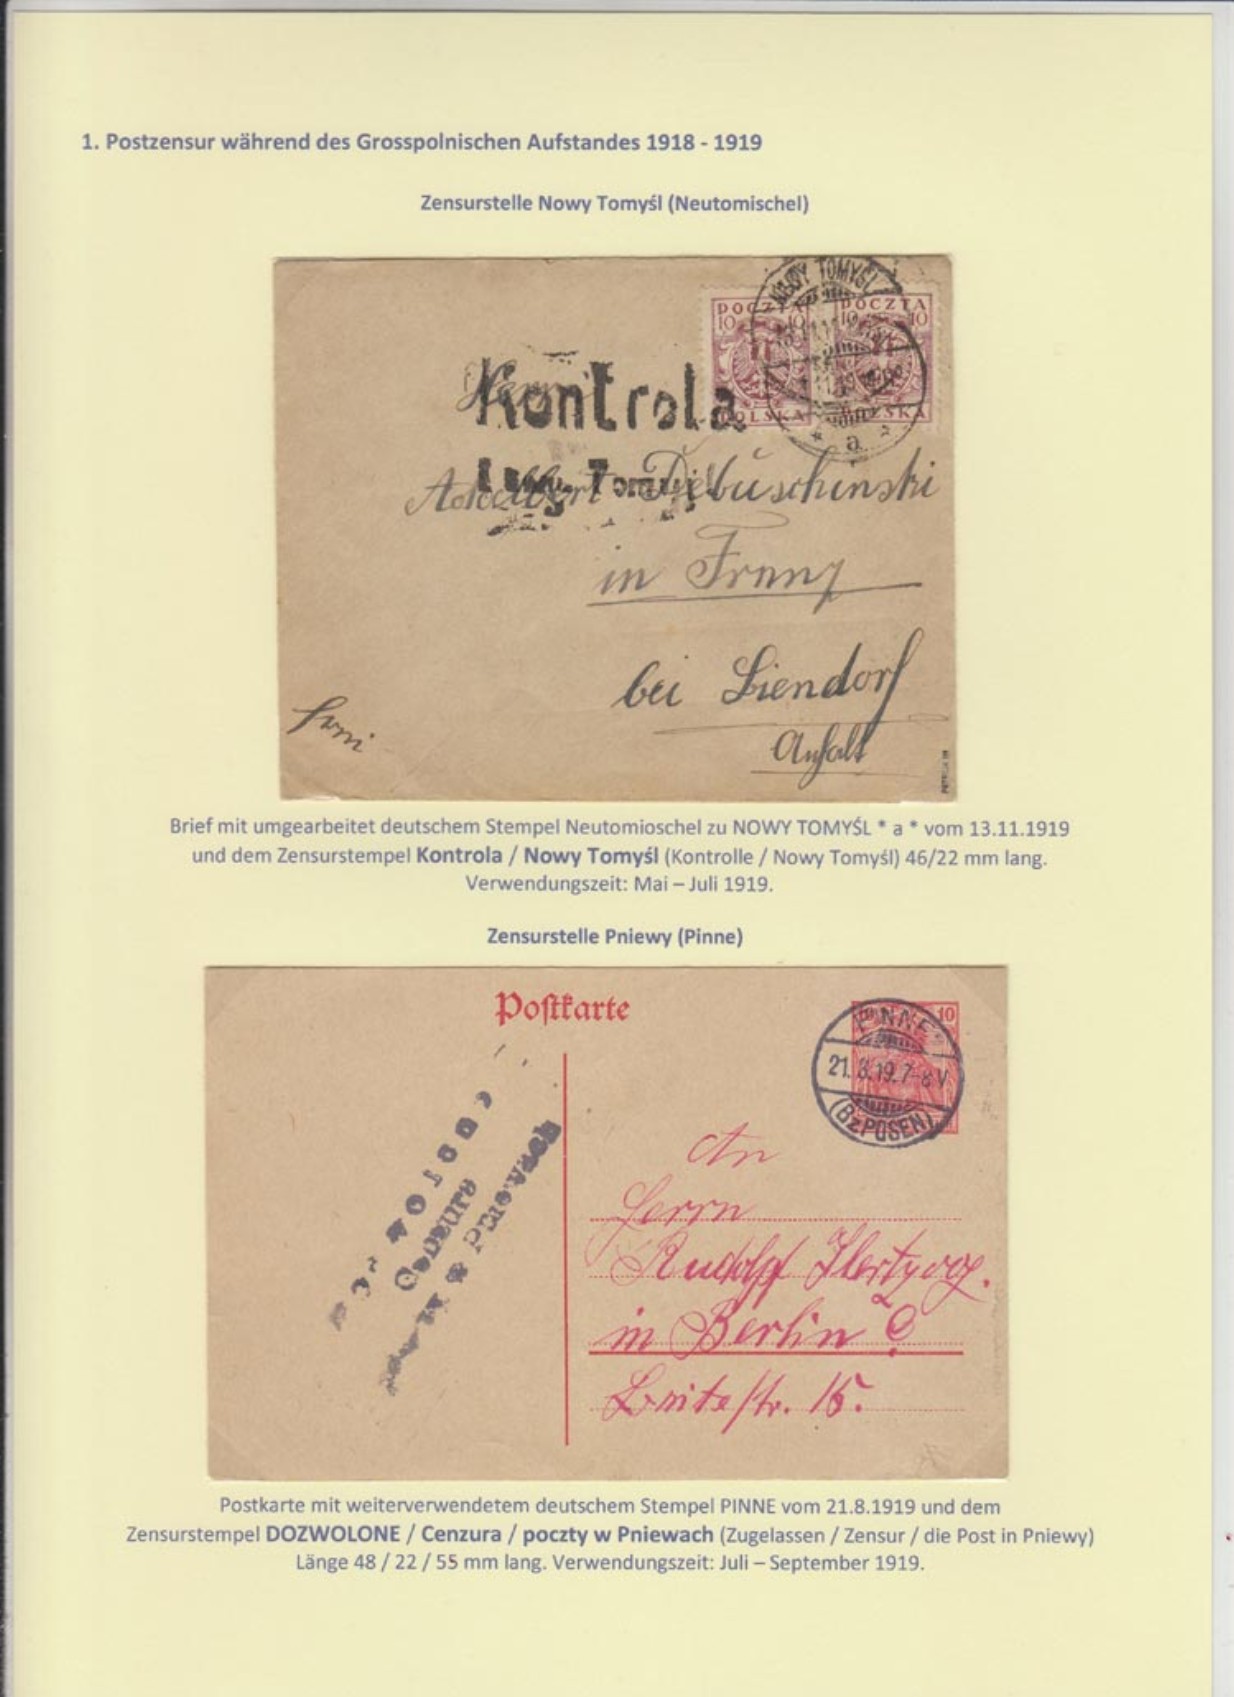 1. Postzensur während des Grosspolnischen Aufstandes 1918 - 1919
Zensurstelle Nowy Tomyśl (Neutomischel)
NOWY TOMYŚL
POCZTA POCZTA
10 10 10 10
POLSKA POLSKA
* a *
Kontrola
Adalbert Debuschinski
in
bei Liendorf
Anhalt
Brief mit umgearbeitet deutschem Stempel Neutomioschel zu NOWY TOMYŚL * a * vom 13.11.1919
und dem Zensurstempel Kontrola / Nowy Tomyśl (Kontrolle / Nowy Tomyśl) 46/22 mm lang.
Verwendungszeit: Mai – Juli 1919.
Zensurstelle Pniewy (Pinne)
Postkarte
10
PINNE
21.8.19.7-8V
(Bz POSEN)
Cenzura
An
Herrn
Rudolf Hertzog.
in Berlin C
Breitestr. 15.
Postkarte mit weiterverwendetem deutschem Stempel PINNE vom 21.8.1919 und dem
Zensurstempel DOZWOLONE / Cenzura / poczty w Pniewach (Zugelassen / Zensur / die Post in Pniewy)
Länge 48 / 22 / 55 mm lang. Verwendungszeit: Juli – September 1919.